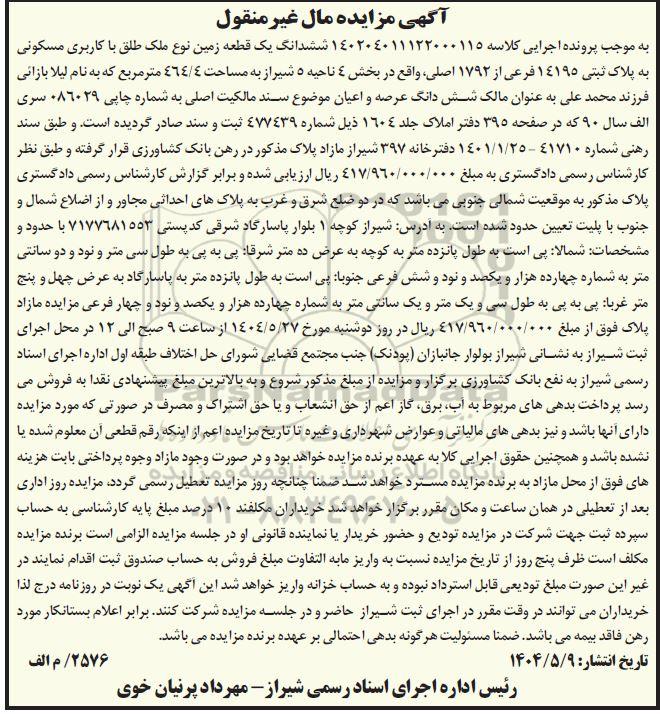 آگهی مزایده مال غیرمنقول
به موجب پرونده اجرایی کلاسه ۱۴۰۲۰۴۰۱۱۱۲۲۰۰۰۱۱۵ ششدانگ یک قطعه زمین نوع ملک طلق با کاربری مسکونی
به پلاک ثبتی ۱۴۱۹۵ فرعی از ۱۷۹۲ اصلی، واقع در بخش ۴ ناحیه ۵ شیراز به مساحت ۴۶۴/۴ مترمربع که به نام لیلا بازائی
فرزند محمد علی به عنوان مالک شش دانگ عرصه و اعیان موضوع سند مالکیت اصلی به شماره چاپی ۰۸۶۰۲۹ سری
الف سال ۹۰ که در صفحه ۳۹۵ دفتر املاک جلد ۱۶۰۴ ذیل شماره ۴۷۷۴۳۹ ثبت و سند صادر گردیده است. و طبق سند
رهنی شماره ۴۱۷۱۰ - ۱۴۰۱/۱/۲۵ دفترخانه ۳۹۷ شیراز مازاد پلاک مذکور در رهن بانک کشاورزی قرار گرفته و طبق نظر
کارشناس رسمی دادگستری به مبلغ ۴۱۷/۹۶۰/۰۰۰/۰۰۰ ریال ارزیابی شده و برابر گزارش کارشناس رسمی دادگستری
پلاک مذکور به موقعیت شمالی جنوبی می باشد که در دو ضلع شرق و غرب به پلاک های احداثی مجاور و از اضلاع شمال و
جنوب با پلیت تعیین حدود شده است. به آدرس: شیراز کوچه ۱ بلوار پاسارگاد شرقی کدپستی ۷۱۷۷۶۸۱۵۵۳ با حدود و
مشخصات: شمالا: پی است به طول پانزده متر به کوچه به عرض ده متر شرقا: پی به پی به طول سی متر و نود و دو سانتی
متر به شماره چهارده هزار و یکصد و نود و شش فرعی جنوبا: پی است به طول پانزده متر به پاسارگاد به عرض چهل و پنج
متر غربا: پی به پی به طول سی و یک متر و یک سانتی متر به شماره چهارده هزار و یکصد و نود و چهار فرعی مزایده مازاد
پلاک فوق از مبلغ ۴۱۷/۹۶۰/۰۰۰/۰۰۰ ریال در روز دوشنبه مورخ ۱۴۰۴/۵/۲۷ از ساعت ۹ صبح الی ۱۲ در محل اجرای
ثبت شیراز به نشانی شیراز بولوار جانبازان (پودنک) جنب مجتمع قضایی شورای حل اختلاف طبقه اول اداره اجرای اسناد
رسمی شیراز به نفع بانک کشاورزی برگزار و مزایده از مبلغ مذکور شروع و به بالاترین مبلغ پیشنهادی نقدا به فروش می
رسد پرداخت بدهی های مربوط به آب، برق، گاز اعم از حق انشعاب و یا حق اشتراک و مصرف در صورتی که مورد مزایده
دارای آنها باشد و نیز بدهی های مالیاتی و عوارض شهرداری و غیره تا تاریخ مزایده اعم از اینکه رقم قطعی آن معلوم شده یا
نشده باشد و همچنین حقوق اجرایی کلا به عهده برنده مزایده خواهد بود و در صورت وجود مازاد وجوه پرداختی بابت هزینه
های فوق از محل مازاد به برنده مزایده مسترد خواهد شد ضمنا چنانچه روز مزایده تعطیل رسمی گردد، مزایده روز اداری
بعد از تعطیلی در همان ساعت و مکان مقرر برگزار خواهد شد خریداران مکلفند ۱۰ درصد مبلغ پایه کارشناسی به حساب
سپرده ثبت جهت شرکت در مزایده تودیع و حضور خریدار یا نماینده قانونی او در جلسه مزایده الزامی است برنده مزایده
مکلف است ظرف پنج روز از تاریخ مزایده نسبت به واریز مابه التفاوت مبلغ فروش به حساب صندوق ثبت اقدام نمایند در
غیر این صورت مبلغ تودیعی قابل استرداد نبوده و به حساب خزانه واریز خواهد شد این آگهی یک نوبت در روزنامه درج لذا
خریداران می توانند در وقت مقرر در اجرای ثبت شیراز حاضر و در جلسه مزایده شرکت کنند. برابر اعلام بستانکار مورد
رهن فاقد بیمه می باشد. ضمنا مسئولیت هرگونه بدهی احتمالی بر عهده برنده مزایده می باشد.
تاریخ انتشار: ۱۴۰۴/۵/۹ ۲۵۷۶/ م الف
رئیس اداره اجرای اسناد رسمی شیراز – مهرداد پرنیان خوی
ParsNamadData
پایگاه اطلاع رسانی مناقصه و مزایده
۰۲۱-۸۸۳۴۹۶۷۰-۵